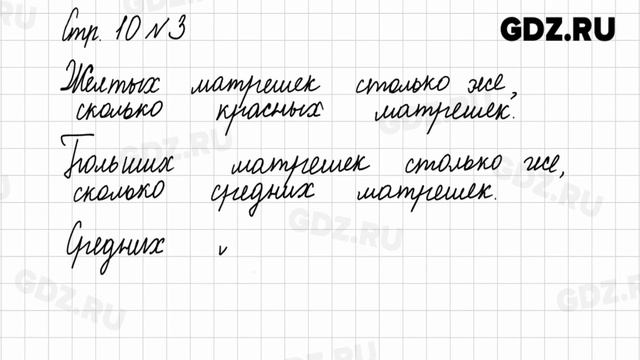 GDZ.RU
Стр. 10 №3
Желтых матрешек столько же,
сколько красных матрешек.
Больших матрешек столько же,
сколько средних матрешек.
Средних
GDZ.RU
GDZ.RU
GDZ.RU
GDZ.RU
GDZ.RU